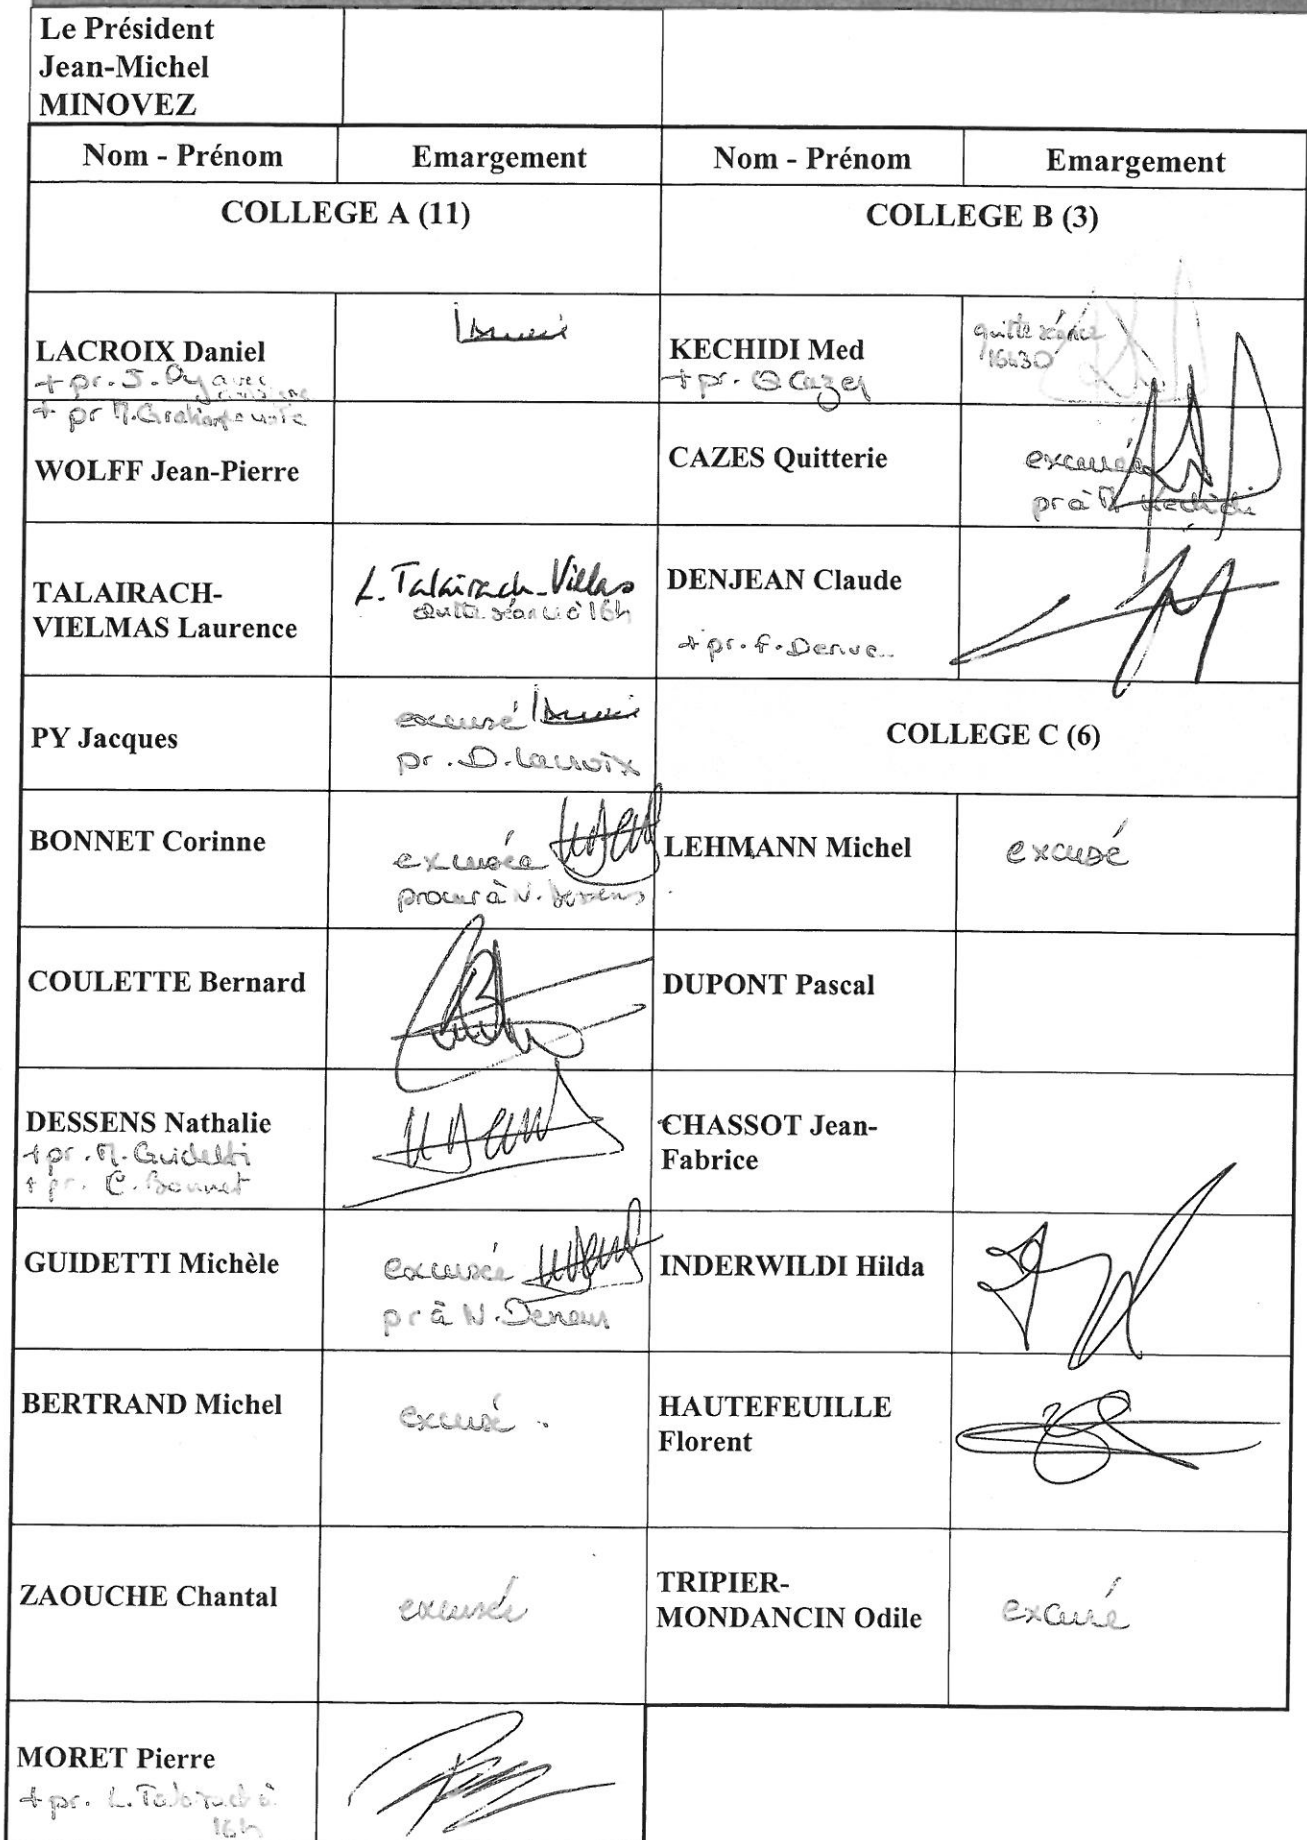 Le Président
Jean-Michel
MINOVEZ
Nom - Prénom
Emargement
Nom - Prénom
Emargement
COLLEGE A (11)
COLLEGE B (3)
LACROIX Daniel
+ pr. J. Py avec
KECHIDI Med
+ pr. Q Cazes
quitte séance
16h30
+ pr
WOLFF Jean-Pierre
CAZES Quitterie
excusée
pr à M. Kechidi
TALAIRACH-
VIELMAS Laurence
L. Talairach-Vielmas
quitte séance à 16h
DENJEAN Claude
+ pr. F.
PY Jacques
excusé
pr. D. Lacroix
COLLEGE C (6)
BONNET Corinne
excusée
procur à N. Dessens
LEHMANN Michel
excusé
COULETTE Bernard
DUPONT Pascal
DESSENS Nathalie
+ pr. M. Guidetti
+ pr. C. Bonnet
CHASSOT Jean-
Fabrice
GUIDETTI Michèle
excusée
pr à N. Dessens
INDERWILDI Hilda
BERTRAND Michel
excusé
HAUTEFEUILLE
Florent
ZAOUCHE Chantal
excusée
TRIPIER-
MONDANCIN Odile
excusé
MORET Pierre
+ pr. L. Talairach à
16h